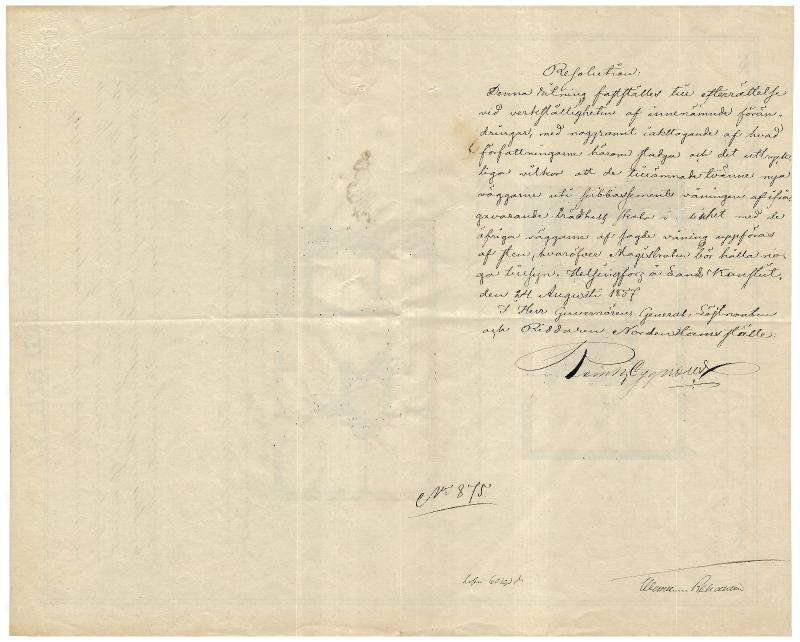 Resolution:
Denna ritning fastställes till efterrättelse
vid verkställigheten af innenämnde förän-
dringar, med noggrannt iakttagande af hvad
författningarne härom stadga och det uttryck-
liga vilkor att de tillämnade tvänne nya
väggarne uti soubbasements våningen af ifrå-
gavarande trädhus skola i likhet med de
öfriga väggarne af sagde våning uppföras
af sten, hvaröfver Magistraten bör hålla no-
ga tillsyn. Helsingfors å Lands Kansliet,
den 24 Augusti 1857
I Herr Guvernörens General Löjtnanten
och Riddaren Nordenstams ställe:
Cygnæus
No 875.